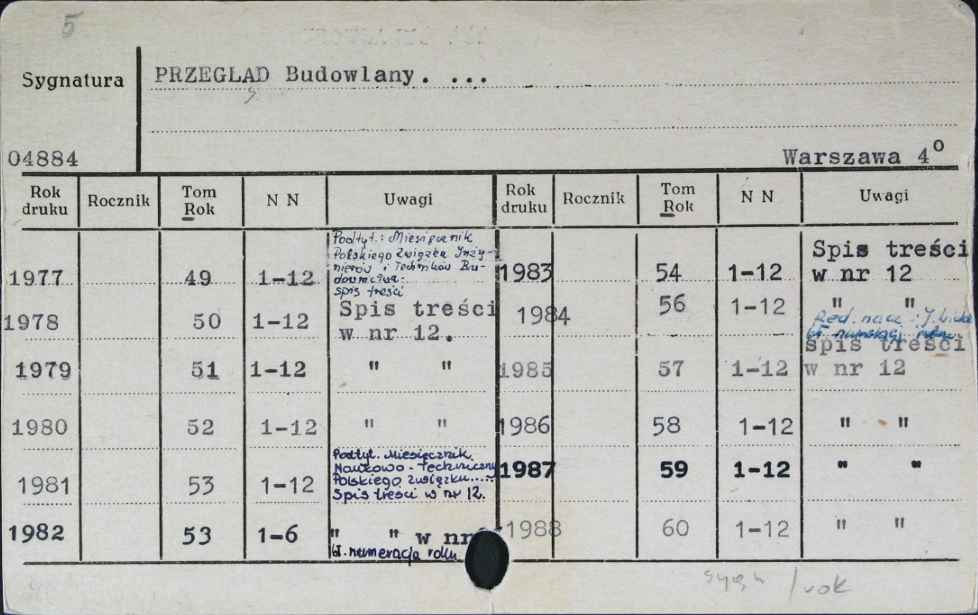 5
Sygnatura PRZEGLĄD Budowlany. ...
04884 Warszawa 4°
Rok druku Rocznik Tom Rok N N Uwagi Rok druku Rocznik Tom Rok N N Uwagi
Podtyt.: Miesięcznik
Polskiego Związku Inży-
nierów i Techników Bu-
downictwa.
spis treści
1977 49 1-12
1983 54 1-12 Spis treści
w nr 12
1978 50 1-12 Spis treści
w nr 12.
1984 56 1-12 " "
Red. nacz.: J.
bł. numeracja
1979 51 1-12 " "
1985 57 1-12 spis treści
w nr 12
1980 52 1-12 " "
1986 58 1-12 " "
1981 53 1-12 Podtyt. Miesięcznik
Naukowo-Techniczny
Polskiego Związku.....
Spis treści w nr 12.
1987 59 1-12 " "
1982 53 1-6 " " w nr
bł. numeracja roku
1988 60 1-12 " "
/ rok